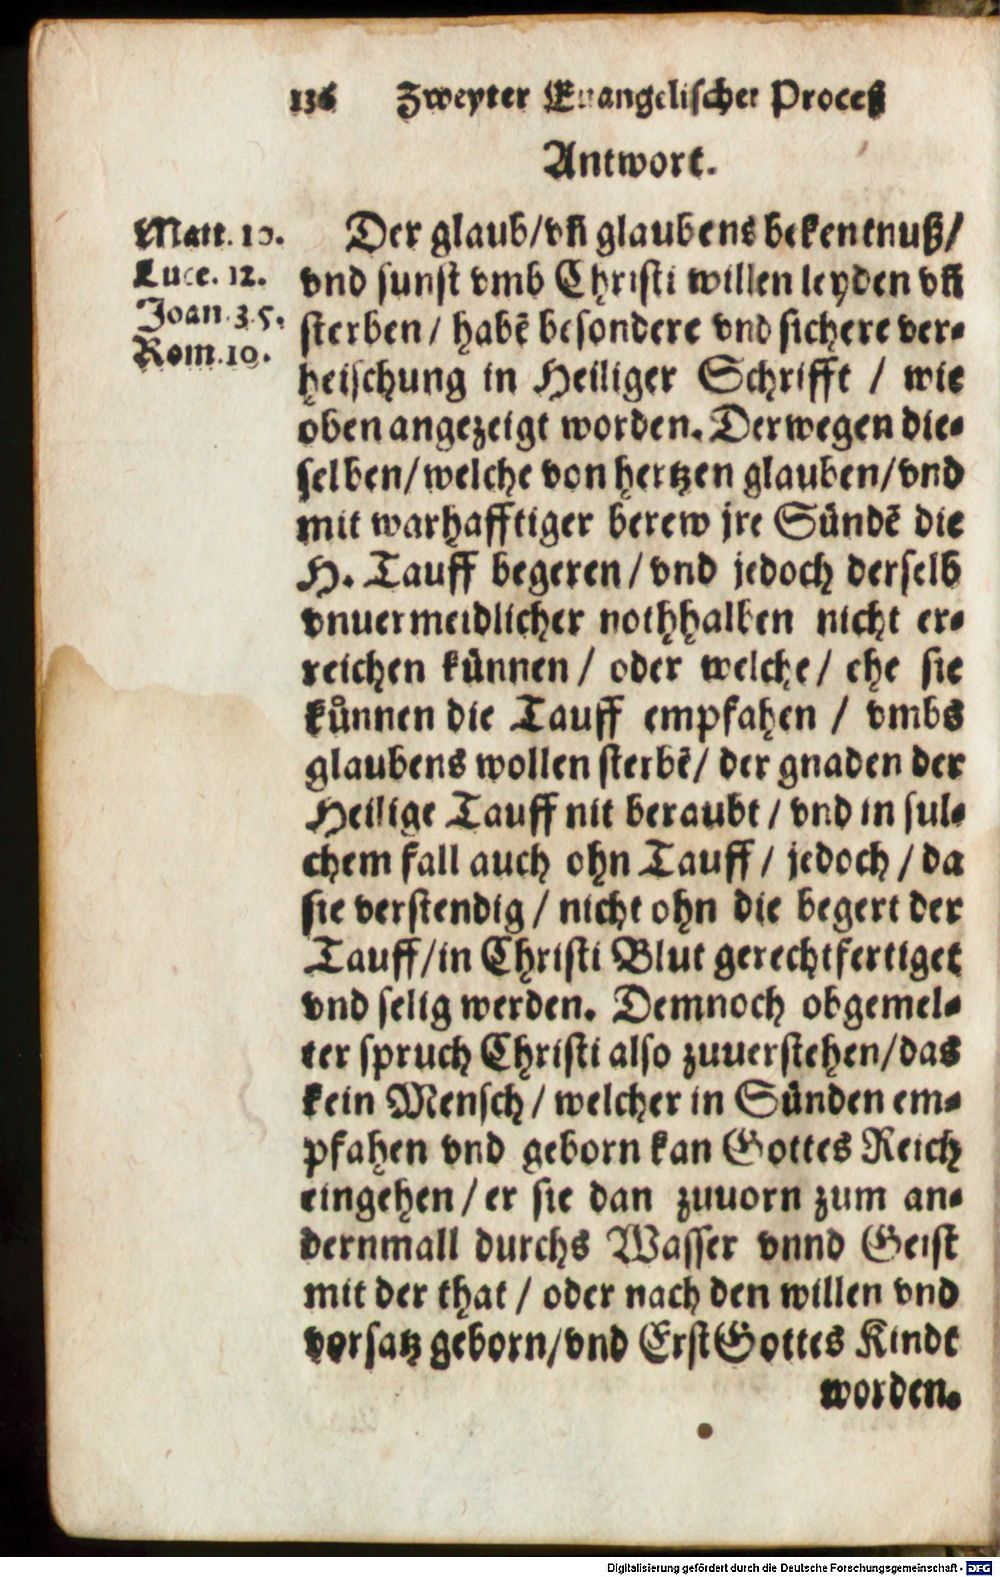 136 Zweyter Euangelischer Proceß
Antwort.
Matt. 10.
Luce. 12.
Joan. 3.5.
Rom. 10.
Der glaub/vñ glaubens bekentnuß/
vnd sunst vmb Christi willen leyden vñ
sterben / habē besondere vnd sichere ver-
heischung in Heiliger Schrifft / wie
oben angezeigt worden. Derwegen die-
selben/welche von hertzen glauben/vnd
mit warhafftiger berew jre Sündē die
H. Tauff begeren / vnd jedoch derselb
vnuermeidlicher nothhalben nicht er-
reichen künnen / oder welche / ehe sie
kůnnen die Tauff empfahen / vmbs
glaubens wollen sterbē/ der gnaden der
Heilige Tauff nit beraubt / vnd in sul-
chem fall auch ohn Tauff / jedoch / da
sie verstendig / nicht ohn die begert der
Tauff/in Christi Blut gerechtfertiget
vnd selig werden. Demnoch obgemel-
ter spruch Christi also zuuerstehen/das
kein Mensch / welcher in Sünden em-
pfahen vnd geborn kan Gottes Reich
eingehen / er sie dan zuuorn zum an-
dernmall durchs Wasser vnnd Geist
mit der that / oder nach den willen vnd
vorsatz geborn/vnd Erst Gottes Kindt
worden.
Digitalisierung gefördert durch die Deutsche Forschungsgemeinschaft - DFG